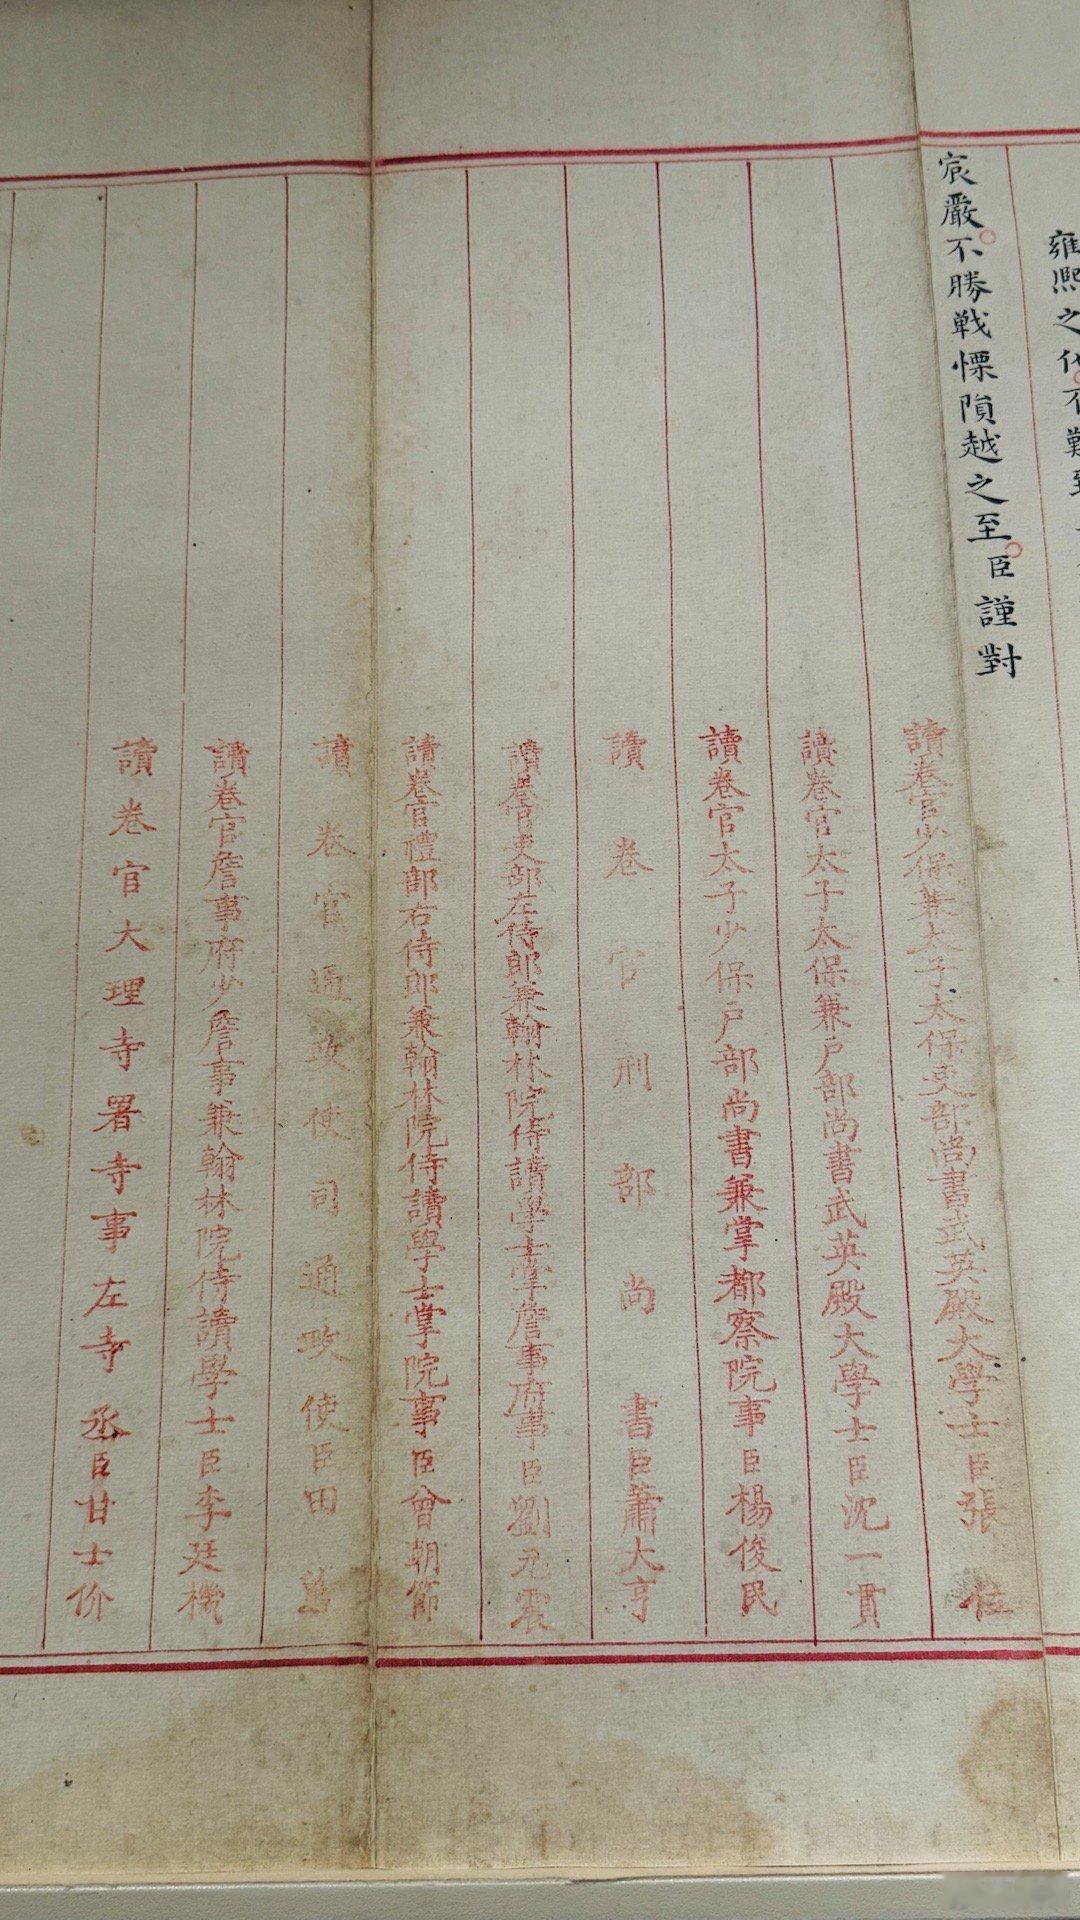 雍熙之代不難
宸嚴不勝戰慄隕越之至臣謹對
讀卷官少保兼太子太保吏部尚書武英殿大學士臣張位
讀卷官太子太保兼戶部尚書武英殿大學士臣沈一貫
讀卷官太子少保戶部尚書兼掌都察院事臣楊俊民
讀卷官刑部尚書臣蕭大亨
讀卷官吏部左侍郎兼翰林院侍讀學士掌詹事府事臣劉元震
讀卷官禮部右侍郎兼翰林院侍讀學士掌院事臣曾朝節
讀卷官通政使司通政使臣田
讀卷官詹事府少詹事兼翰林院侍讀學士臣李廷機
讀卷官大理寺署寺事左寺丞臣甘士价